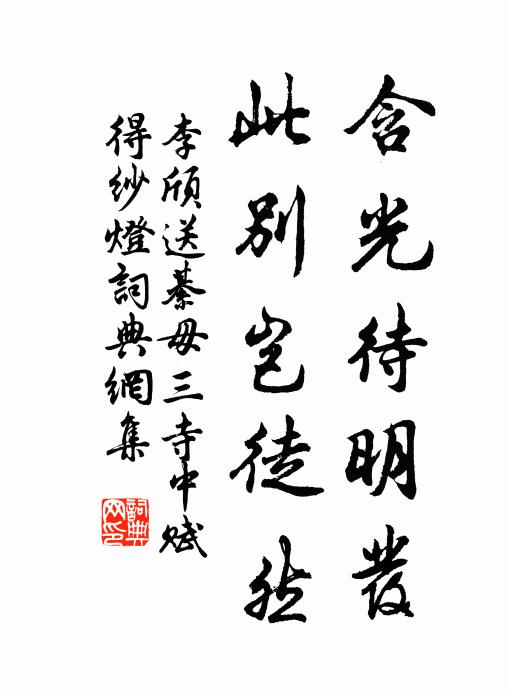 含光待明發
此別豈徒然
李頎送綦毋三寺中賦
得紗燈詞典網集
詞典
网印